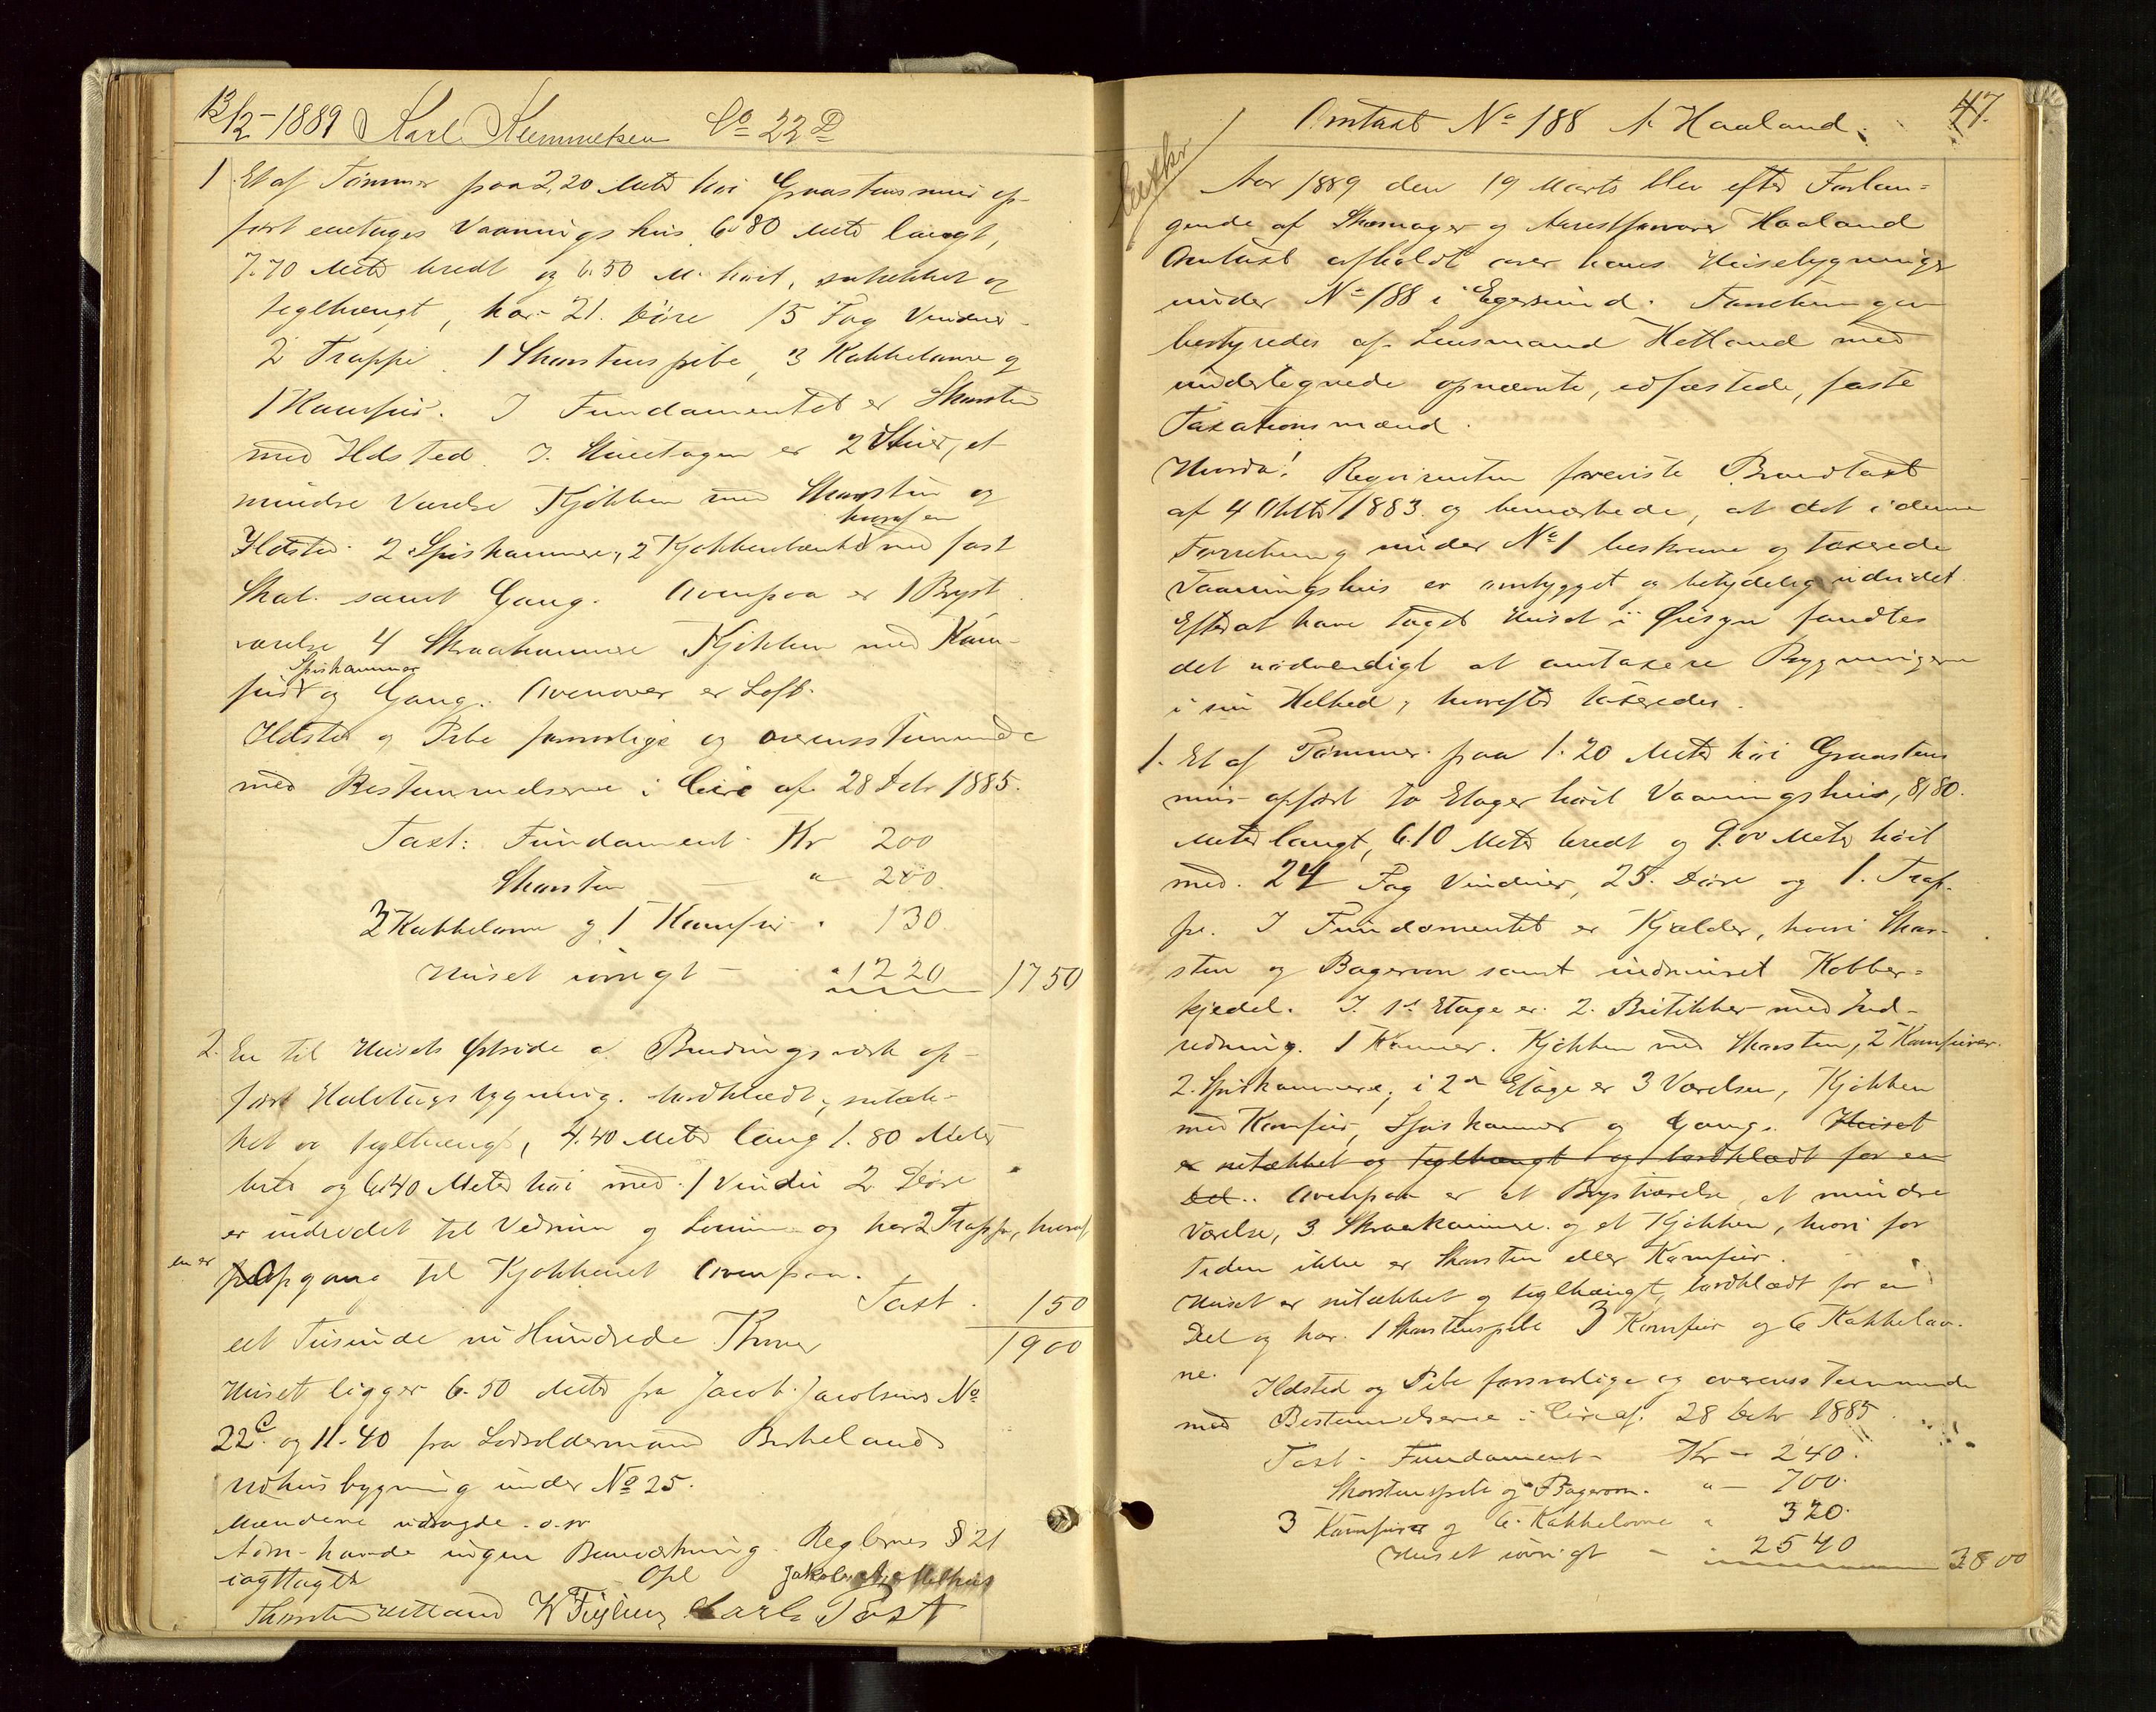 13/2-1889 Karl Klemmetsen No 22 D
1 Et af Tømmer paa 2,20 Meter høi Graastensmur op-
ført eenetages Vaaningshus 6.80 Meter langt,
7.70 Meter bredt og 6.50 M. høit, sutækket og
teglhængt, har 21 Døre 15 Fag Vinduer
2 Trapper 1 Skorstenspibe, 3 Kakkelovne og
1 Komfur. I Fundamentet er Skorsten
med Ildsted. I Stueetagen er 2 Stuer, et
mindre Værelse Kjøkken med Skorsten og
Ildsted 2 Spiskammere, 2 Kjøkkenbænke hvoraf en med fast
Skab samt Gang. Ovenpaa er 1 Bryst
værelse 4 Skraakammere Kjøkken med Kom-
fur Spiskammer og Gang. Ovenover er Loft.
Ildsted og Pibe forsvarlige og overensstemmende
med Bestemmelserne i Circ af 28 Debr 1885.
Taxt: Fundament Kr 200
Skorsten — " 200
3 Kakkelovne og 1 Komfur " 130
Huset iøvrigt — " 1220 1750
2. En til Husets Østside af Bindingsværk op-
ført Halvtagsbygning. bordklædt, sutæk-
ket og teglhængt, 4.40 Meter lang 1.80 Meter
bred og 6.40 Meter høi med 1 Vindu 2 Døre
er indredet til Vedrum og og har 2 Trapper, hvoraf
en er Opgang til Kjøkkenet Ovenpaa.
Taxt 150
eet Tusinde ni Hundrede Kroner 1900
Huset ligger 6.50 Meter fra Jacob Jacobsens No
22 C. og 11.40 fra Lodsoldermand Birkelands
Udhusbygning under No 25.
Mændene udsagde o.s.v
Adm. havde ingen Bemærkning. Reglernes § 21
iagttaget Opl Jakob
Thorsten Hetland W Carl Tost
47.
Omtaxt No 188 Haaland.
Aar 1889 den 19 Marts blev efter Forlan-
gende af Skomager og Arrestforvarer Haaland
Omtaxt afholdt over hans Husebygninger
under No 188 i Egersund. Forretningen
bestyredes af Lensmand Hetland med
undertegnede opnævnte, edfæstede, faste
Taxationsmænd.
Hvorda! Requirenten foreviste Brandtaxt
af 4 Oktbr 1883 og bemærkede, at det i denne
Forretning under No 1 beskrevne og taxerede
Vaaningshus er ombygget og betydelig udvidet.
Efter at have taget Huset i Øiesyn fandtes
det nødvendigt at omtaxere Bygningen
i sin Helhed, hvorefter taxeredes.
1. Et af Tømmer paa 1.20 Meter høi Graastens
mur opført to Etager høit Vaaningshus, 8,80
Meter langt, 6.10 Meter bredt og 9.00 Meter høit
med 24 Fag Vinduer, 25 Døre og 1. Trap-
pe. I Fundamentet er Kjælder, hvori Skor-
sten og Bagerovn samt indmuret Kobber-
kjedel. I 1ste Etage er 2 Butikker med Ind-
redning. 1 Kammer. Kjøkken med Skorsten, 2 Komfurer.
2. Spiskammere, i 2den Etage er 3 Værelser, Kjøkken
med Komfur, Spiskammer og Gang. Huset
er sutækket og teglhængt og bordklædt for en
Del. Ovenpaa er et Brystværelse, et mindre
Værelse, 3 Skraakammere og et Kjøkken, hvori for
Tiden ikke er Skorsten eller Komfur.
Huset er sutækket og teglhængt, bordklædt for en
Del og har 1 Skorstenspibe 3 Komfur og 6 Kakkelov-
ne.
Ildsted og Pibe forsvarlige og overensstemmende
med Bestemmelserne i Circ af 28 Debr 1885.
Taxt Fundament Kr 240.
Skorstenspibe og Bagerovn " 700.
3 Komfure og 6 Kakkelovne " 320.
Huset iøvrigt — " 2540 3800